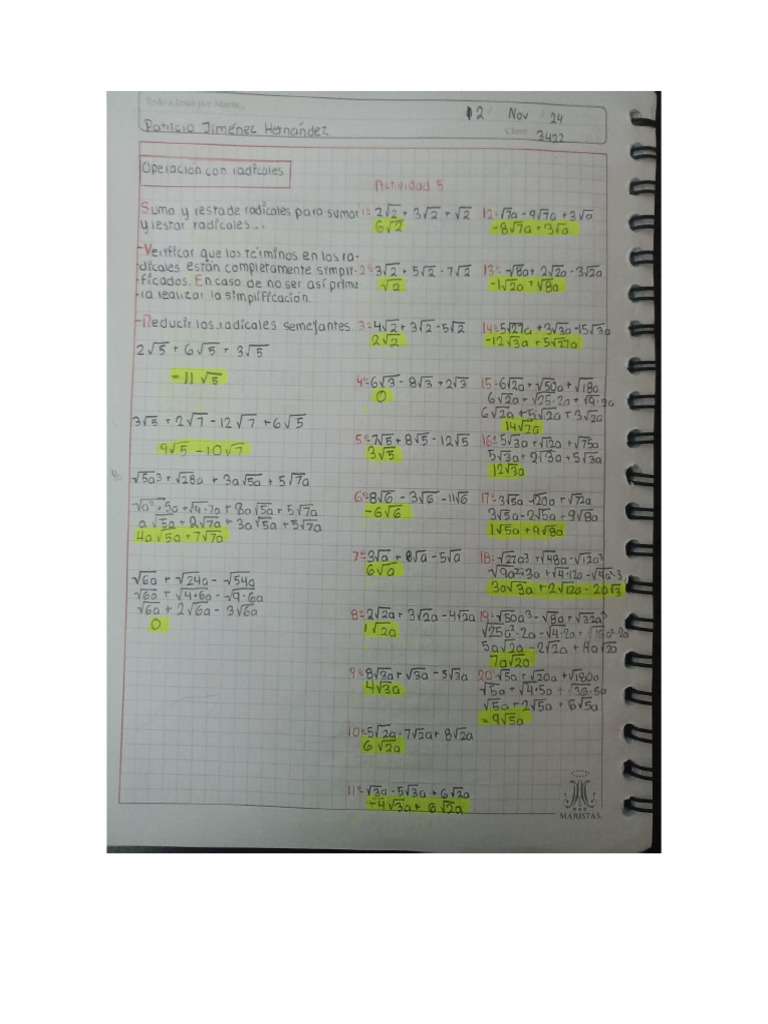 Todo a Jesús por María...
12 Nov 24
Patricio Jiménez Hernández
Clave: 3422
Operación con radicales
Suma y resta de radicales para sumar
y restar radicales...
-Verificar que los términos en los ra-
dicales están completamente simpli-
ficados. En caso de no ser así prime-
ra realizar la simplificación.
-Reducir los radicales semejantes.
2√5 + 6√5 + 3√5
= 11√5
3√5 + 2√7 - 12√7 + 6√5
9√5 - 10√7
√5a³ + √28a + 3a√5a + 5√7a
a√5a + 2√7a + 3a√5a + 5√7a
4a√5a + 7√7a
√6a + √24a - √54a
√6a + √4·6a - √9·6a
√6a + 2√6a - 3√6a
0
Actividad 5
1= 2√2 + 3√2 + √2
6√2
2= 3√2 + 5√2 - 7√2
√2
3= 4√2 + 3√2 - 5√2
2√2
4= 6√3 - 8√3 + 2√3
0
5= 7√5 + 8√5 - 12√5
3√5
6= 8√6 - 3√6 - 11√6
-6√6
7= 3√a + 8√a - 5√a
6√a
8= 2√2a + 3√2a - 4√2a
1√2a
9= 8√3a + √3a - 5√3a
4√3a
10= 5√2a - 7√2a + 8√2a
6√2a
11= √3a - 5√3a + 6√2a
-4√3a + 6√2a
12= √7a - 9√7a + 3√a
-8√7a + 3√a
13= -√8a + 2√2a - 3√2a
-1√2a + √8a
14= 5√27a + 3√3a - 15√3a
-12√3a + 5√27a
15= 6√2a + √50a + √18a
6√2a + √25·2a + √9·2a
6√2a + 5√2a + 3√2a
14√2a
16= 5√3a + √12a + √75a
5√3a + 2√3a + 5√3a
12√3a
17= 3√5a - √20a + √72a
3√5a - 2√5a + 9√8a
1√5a + 9√8a
18= √27a³ + √48a - √12a³
3a√3a + 2√12a - 2a√3
19= √50a³ - √8a + √32a³
√25a²·2a - √4·2a +
5a√2a - 2√2a + 4a√2a
7a√2a
20= √5a + √20a + √180a
√5a + √4·5a + √36·5a
√5a + 2√5a + 6√5a
= 9√5a
MARISTAS